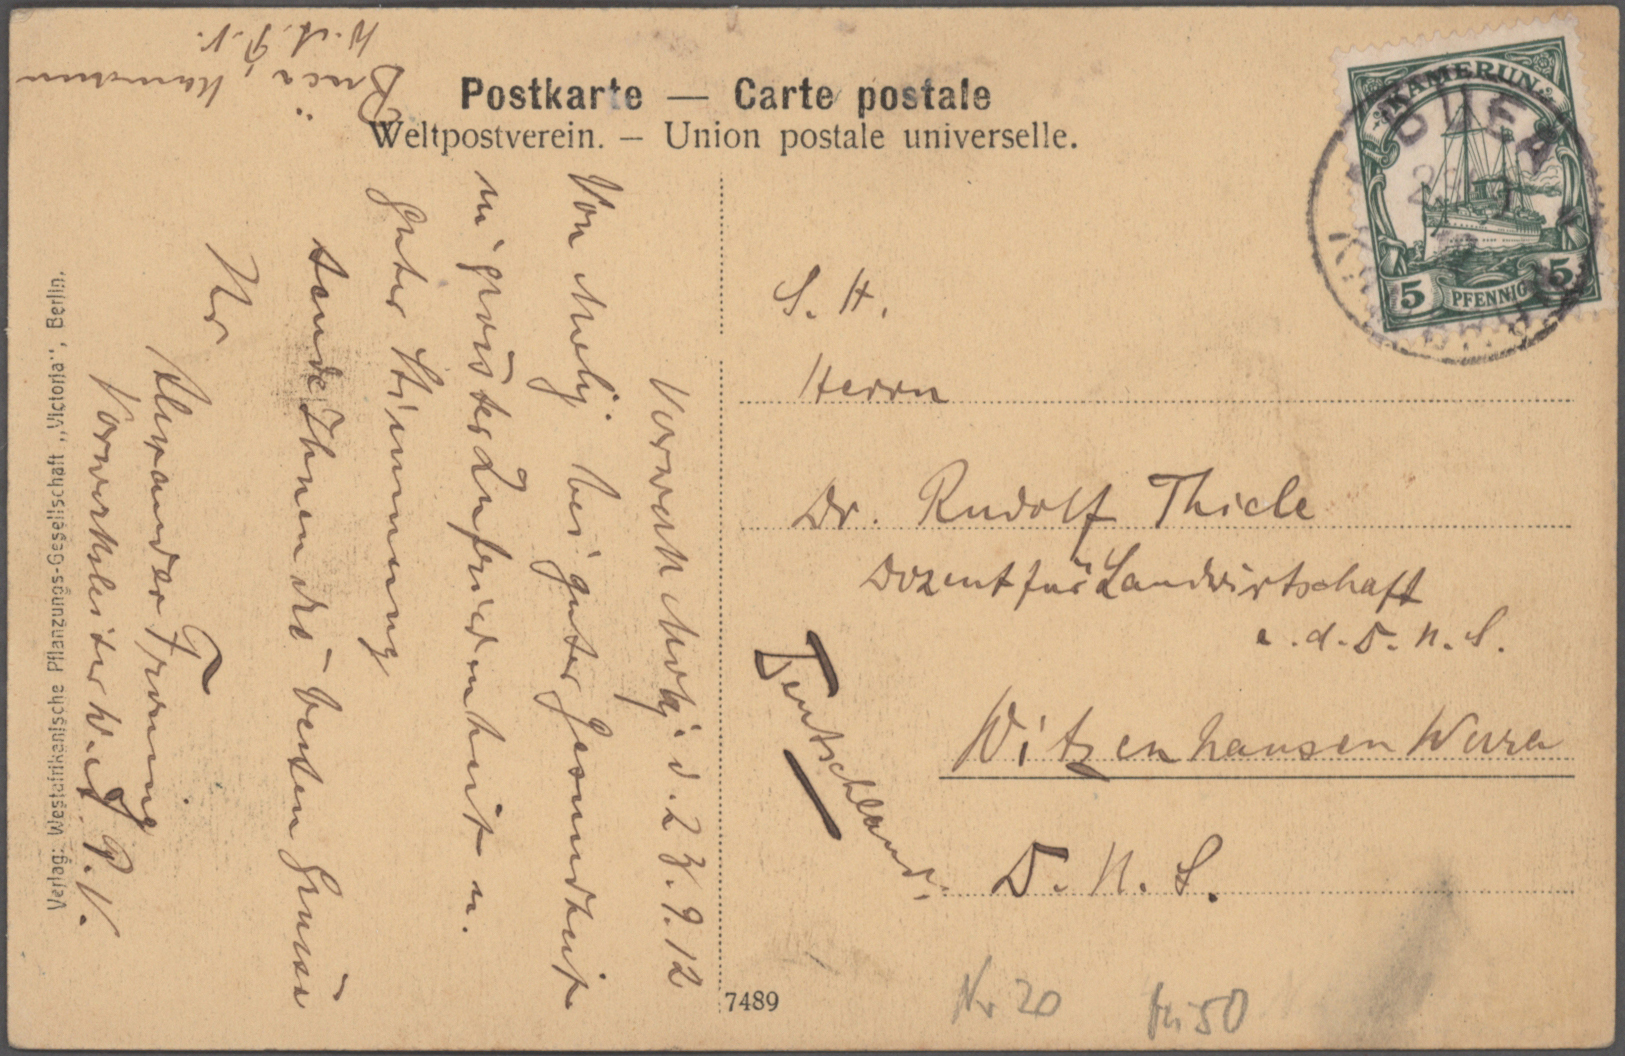 Postkarte — Carte postale
Weltpostverein. — Union postale universelle.
KAMERUN
5 PFENNIG 5
BUEA
Buea, Kamerun
W. A. P. V.
Vorwerk Molij d. 23.9.12
Von Molij bei guter Gesundheit
in grösster Zufriedenheit u.
guter Stimmung
sende Ihnen die besten Grüsse
Ihr
Alexander
Vorwerksleiter W. A. P. V.
S. H.
Herrn
Dr. Rudolf Thiele
Dozent für Landwirtschaft
a. d. D. K. S.
Witzenhausen Werra
D. K. S.
Deutschland.
Verlag: Westafrikanische Pflanzungs-Gesellschaft „Victoria", Berlin.
7489
Nr 20
50